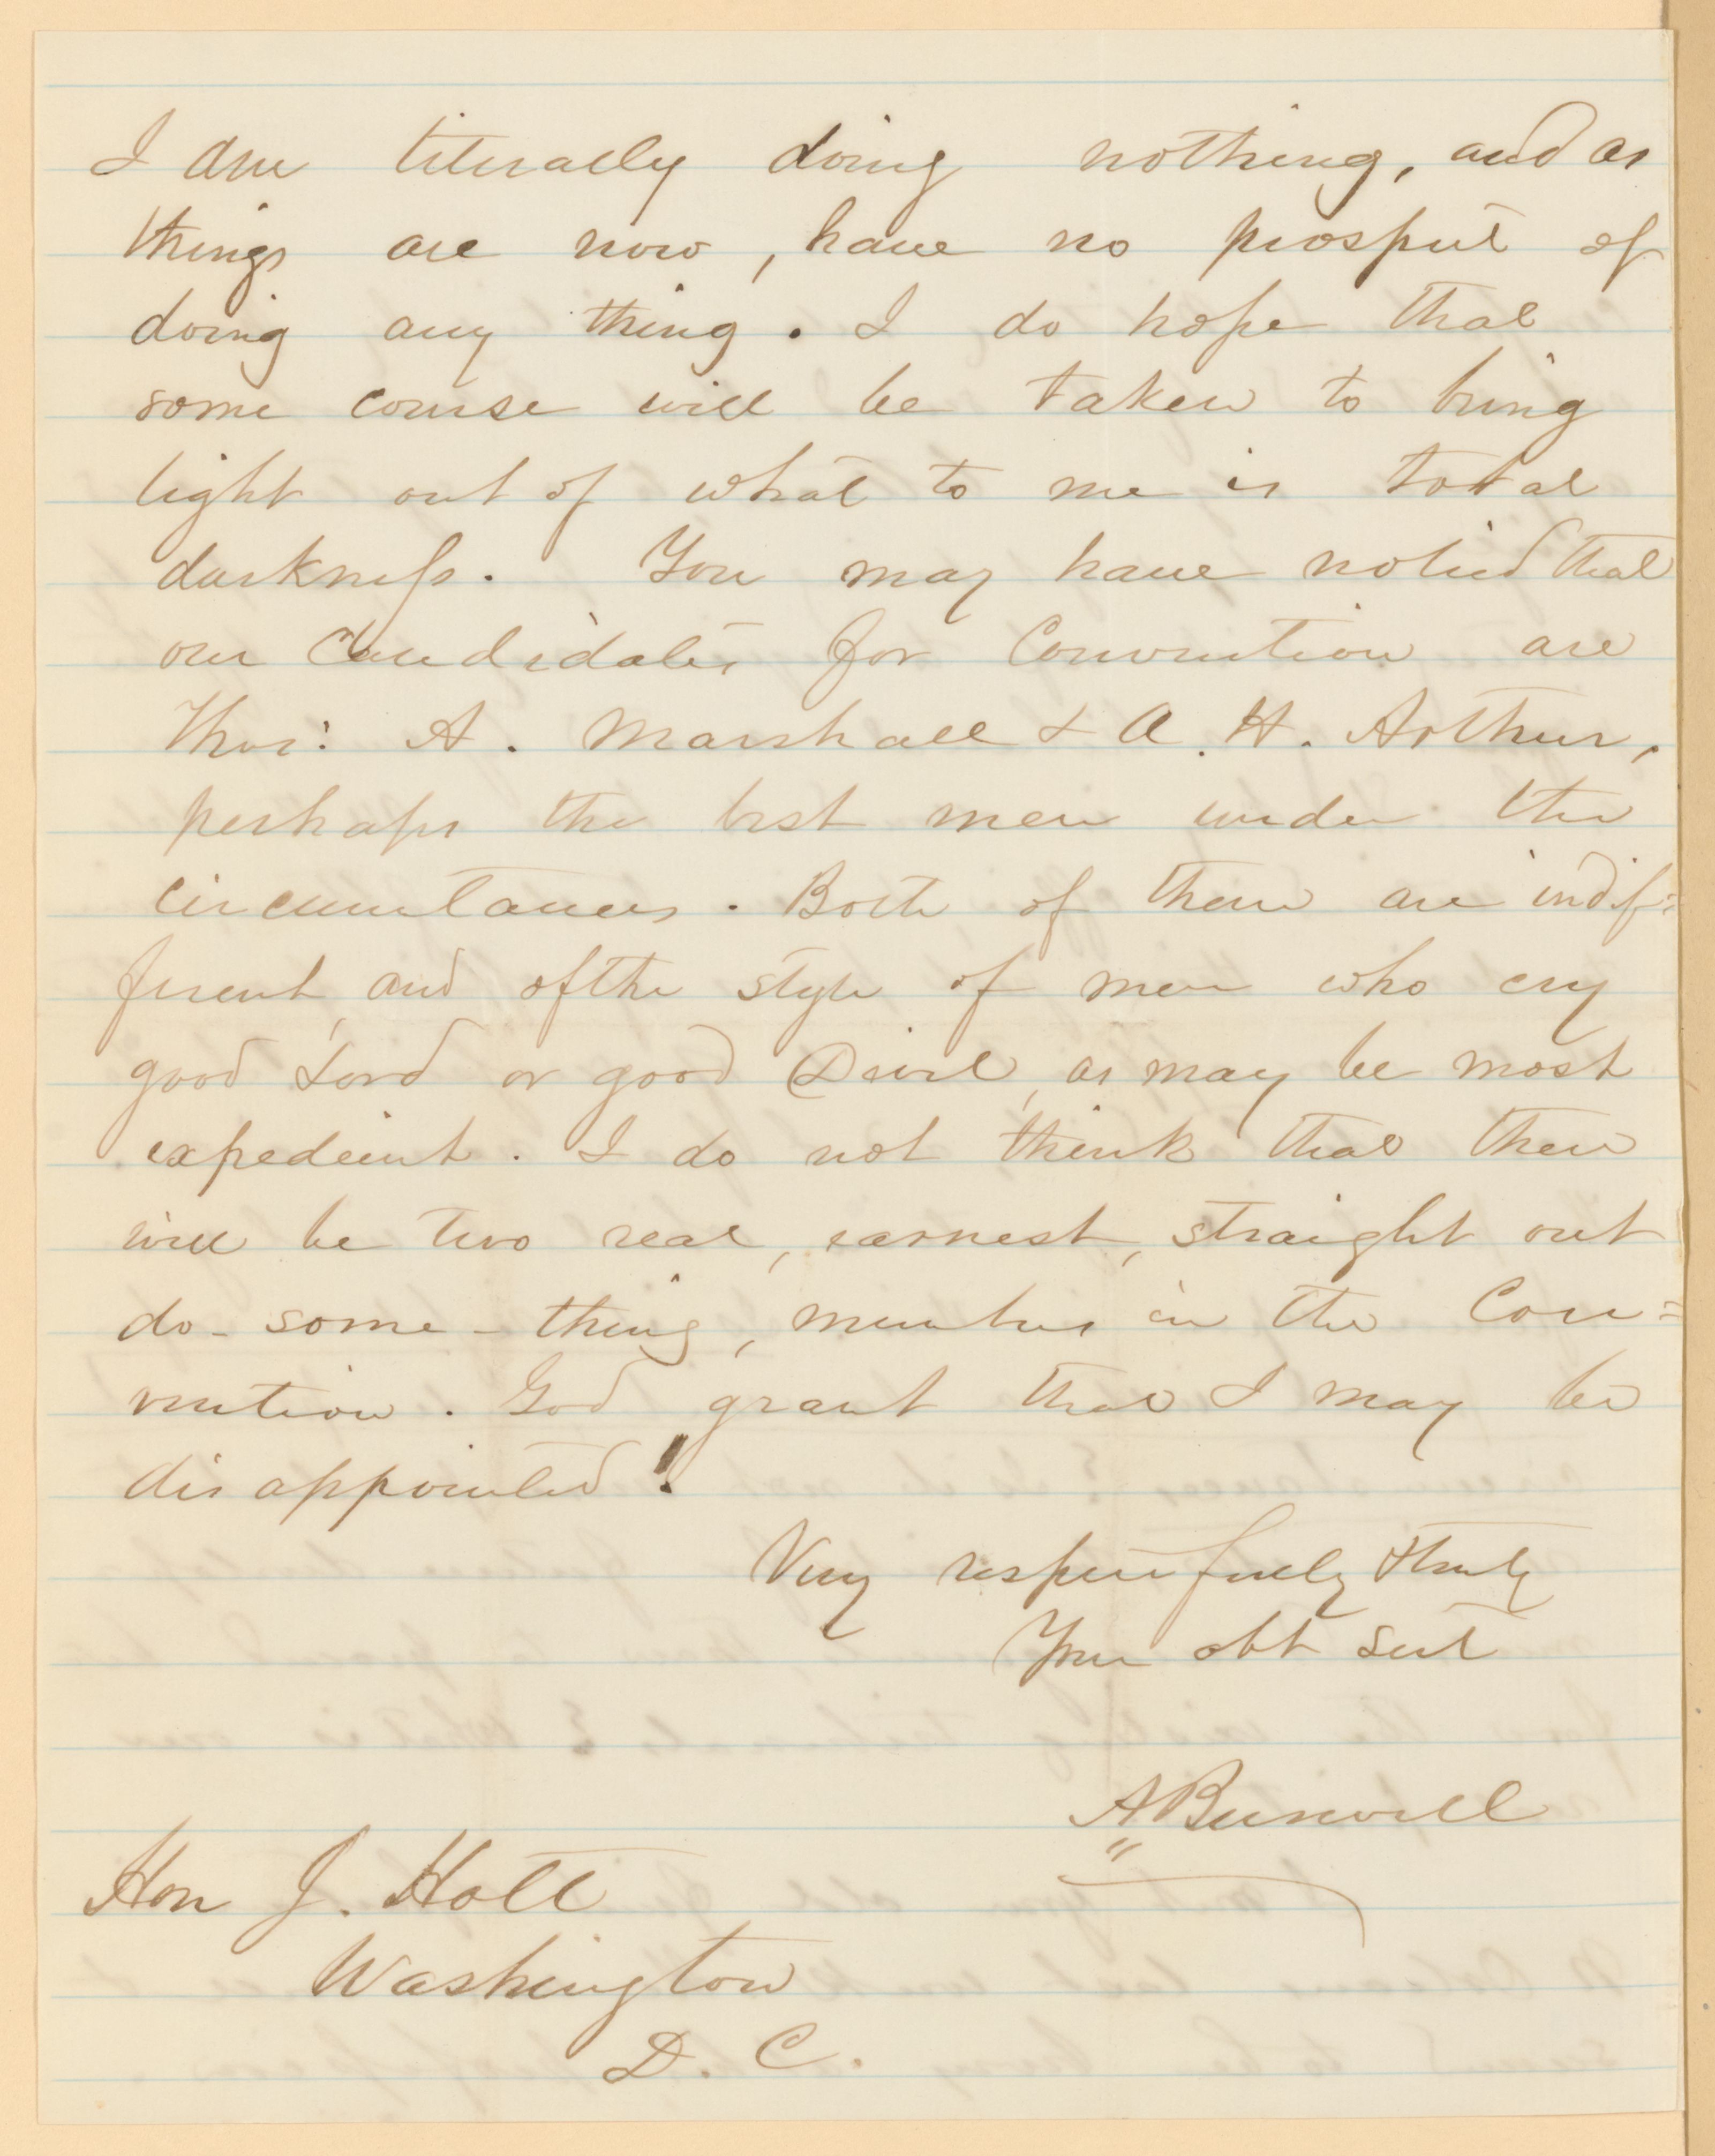 I am literally doing nothing, and as
things are now, have no prospect of
doing any thing. I do hope that
some course will be taken to bring
light out of what to me is total
darkness. You may have noticed that
our Candidates for Convention are
Thos: A. Marshall & A. H. Arthur,
perhaps the best men under the
circumstances. Both of them are indif=
ferent and of the style of men who cry
good Lord or good Devil, as may be most
expedient. I do not think that there
will be two real, earnest, straight out
do-some-thing, members in the Con=
vention. God grant that I may be
disappointed!
Very respectfully & truly
Your obt sevt
A Burwell
Hon J. Holt
Washington
D. C.